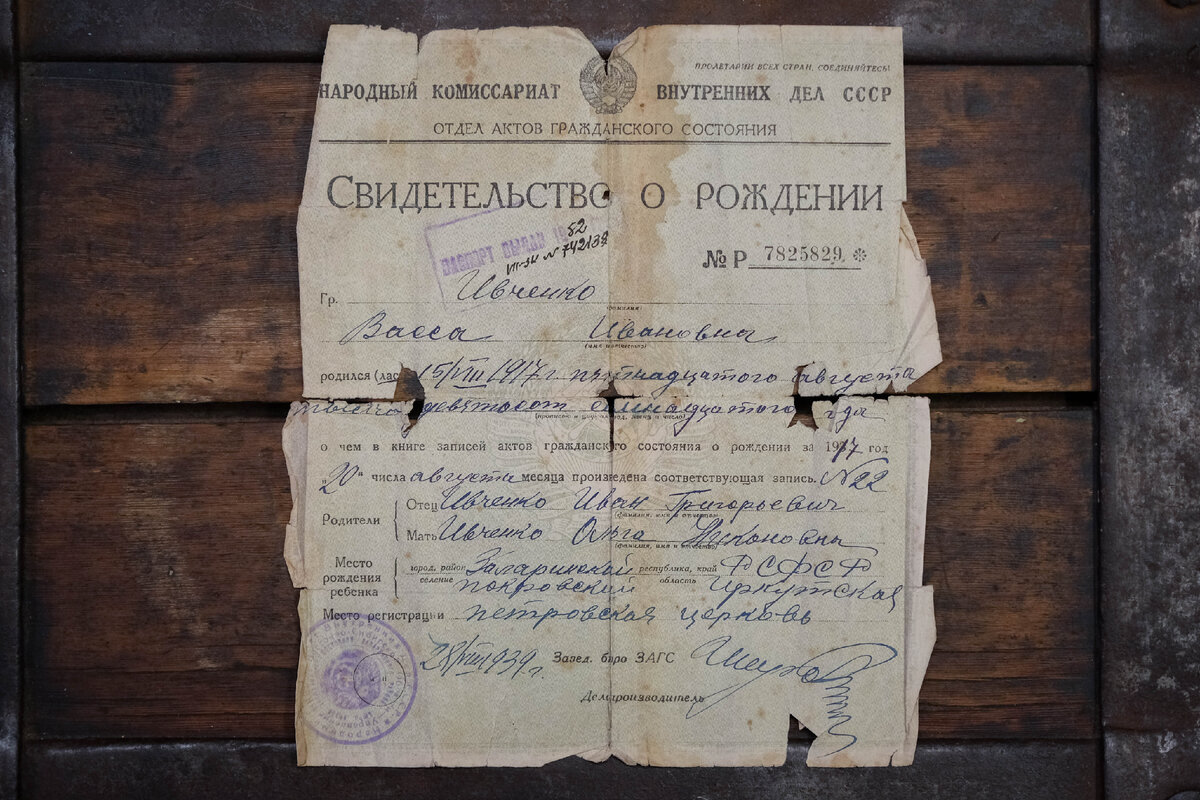 ПРОЛЕТАРИИ ВСЕХ СТРАН, СОЕДИНЯЙТЕСЬ!
НАРОДНЫЙ КОМИССАРИАТ ВНУТРЕННИХ ДЕЛ СССР
ОТДЕЛ АКТОВ ГРАЖДАНСКОГО СОСТОЯНИЯ
СВИДЕТЕЛЬСТВО О РОЖДЕНИИ
ПАСПОРТ ВЫДАН
82
VII-ЭИ N 742138
№ Р 7825829 *
Гр. Ивченко
(фамилия)
Васса Ивановна
(имя и отчество)
родился (лась) 15/VIII 1917 г пятнадцатого августа
тысяча девятьсот семнадцатого года
о чем в книге записей актов гражданского состояния о рождении за 1917 год
"20" числа августа месяца произведена соответствующая запись. N 22
Родители
Отец Ивченко Иван Григорьевич
(фамилия, имя и отчество)
Мать Ивченко Ольга Никоновна
(фамилия, имя и отчество)
Место рождения ребенка
город, район Заларинский республика, край РСФСР
селение Покровский область Иркутская
Место регистрации петровская церковь
28/VIII 1939 г. Завед. бюро ЗАГС
Делопроизводитель